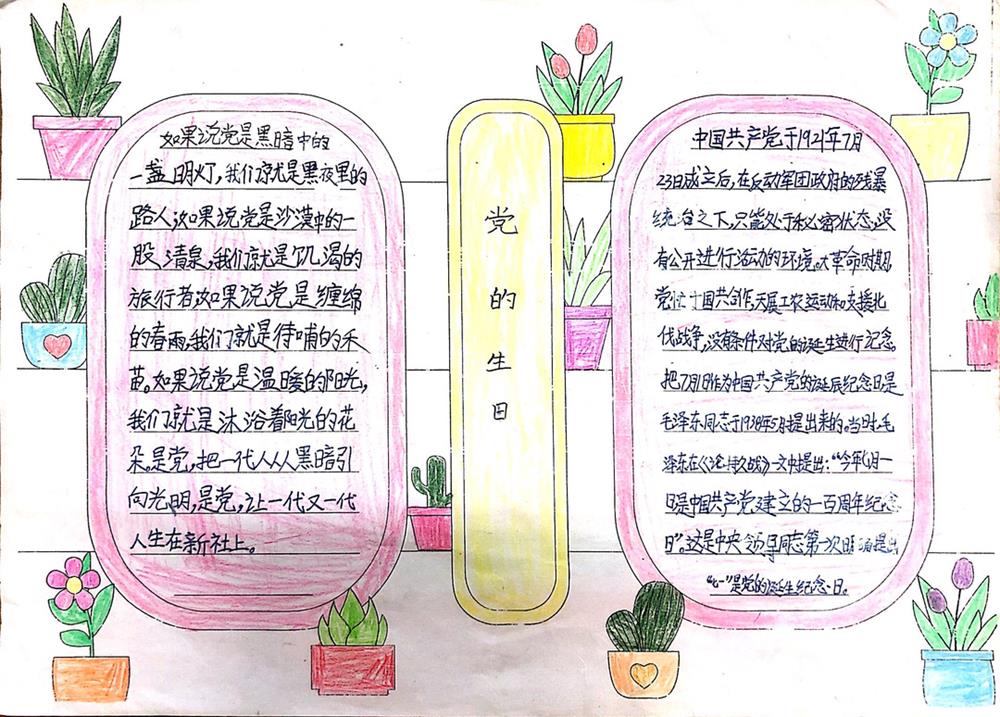 如果说党是黑暗中的
一盏明灯,我们就是黑夜里的
路人;如果说党是沙漠中的一
股清泉,我们就是饥渴的
旅行者;如果说党是缠绵
的春雨,我们就是待哺的禾
苗。如果说党是温暖的阳光,
我们就是沐浴着阳光的花
朵。是党,把一代人从黑暗引
向光明,是党,让一代又一代
人生在新社上。
党
的
生
日
中国共产党于1921年7月
23日成立后,在反动军团政府的残暴
统治之下,只能处于秘密状态,没
有公开进行活动的环境。大革命时期,
党忙于国共合作,开展工农运动和支援北
伐战争,没有条件对党的诞生进行纪念。
把7月1日作为中国共产党的诞辰纪念日是
毛泽东同志于1938年5月提出来的。当时,毛
泽东在《论持久战》一文中提出:“今年七月一
日是中国共产党建立的一百周年纪念
日”。这是中央领导同志第一次明确提出
“七一”是党的诞生纪念日。